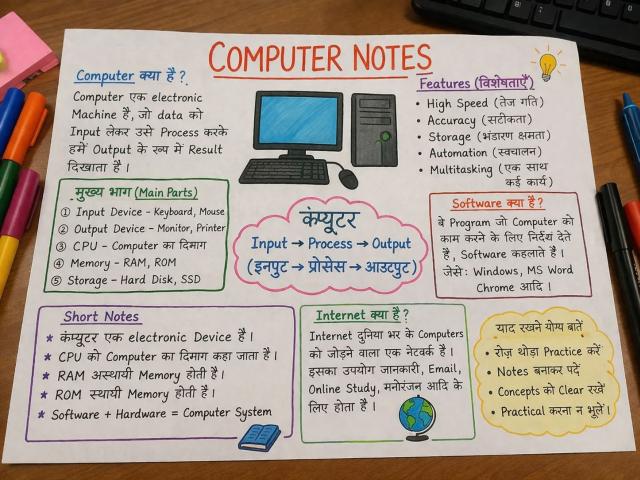 COMPUTER NOTES
Computer क्या है ?
Computer एक electronic
Machine है, जो data को
Input लेकर उसे Process करके
हमें Output के रूप में Result
दिखाता है ।
Features (विशेषताएँ)
• High Speed (तेज गति)
• Accuracy (सटीकता)
• Storage (भंडारण क्षमता)
• Automation (स्वचालन)
• Multitasking (एक साथ
कई कार्य)
मुख्य भाग (Main Parts)
① Input Device - Keyboard, Mouse
② Output Device - Monitor, Printer
③ CPU - Computer का दिमाग
④ Memory - RAM, ROM
⑤ Storage - Hard Disk, SSD
कंप्यूटर
Input → Process → Output
(इनपुट → प्रोसेस → आउटपुट)
Software क्या है ?
वे Program जो Computer को
काम करने के लिए निर्देश देते
है, Software कहलाता है ।
जेसे: Windows, MS Word
Chrome आदि ।
Short Notes
★ कंप्यूटर एक electronic Device है ।
★ CPU को Computer का दिमाग कहा जाता है ।
★ RAM अस्थायी Memory होती है ।
★ ROM स्थायी Memory होती है ।
★ Software + Hardware = Computer System
Internet क्या है ?
Internet दुनिया भर के Computers
को जोड़ने वाला एक नेटवर्क है ।
इसका उपयोग जानकारी, Email,
Online Study, मनोरंजन आदि के
लिए होता है ।
याद रखने योग्य बातें
• रोज़ थोड़ा Practice करें
• Notes बनाकर पढ़ें
• Concepts को Clear रखें
• Practical करना न भूलें ।